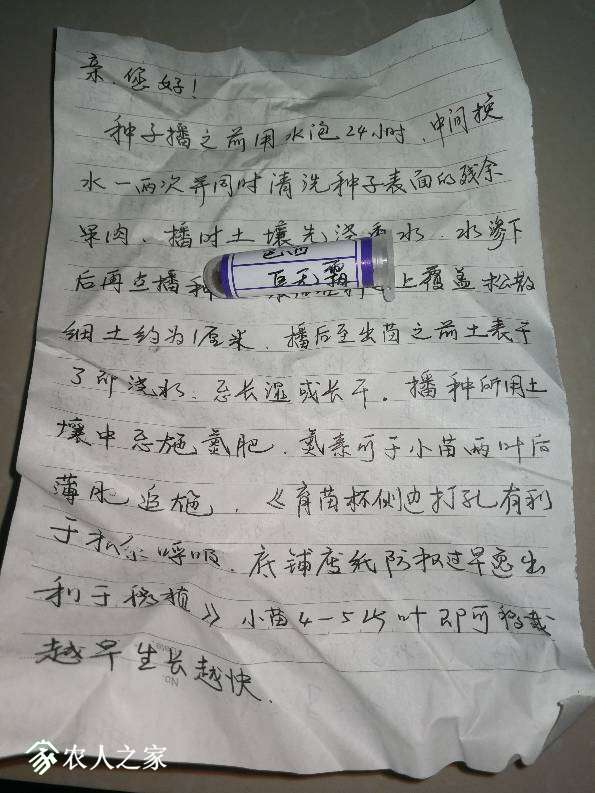 亲、您好！
种子播之前用水泡24小时、中间换
水一两次并同时清洗种子表面的残余
果肉、播时土壤先浇 水、水渗下
巨无霸
后再点播种 上覆盖松散
细土约为1厘米、播后至出苗之前土表干
了即浇水、忌长湿或长干。播种所用土
壤中忌施氮肥、氮素可于小苗两叶后
薄肥追施、《育苗杯侧边打孔有利
于根系呼吸、底铺废纸防根过早逸出
利于移植》小苗4-5片叶即可移栽
越早生长越快、
农人之家